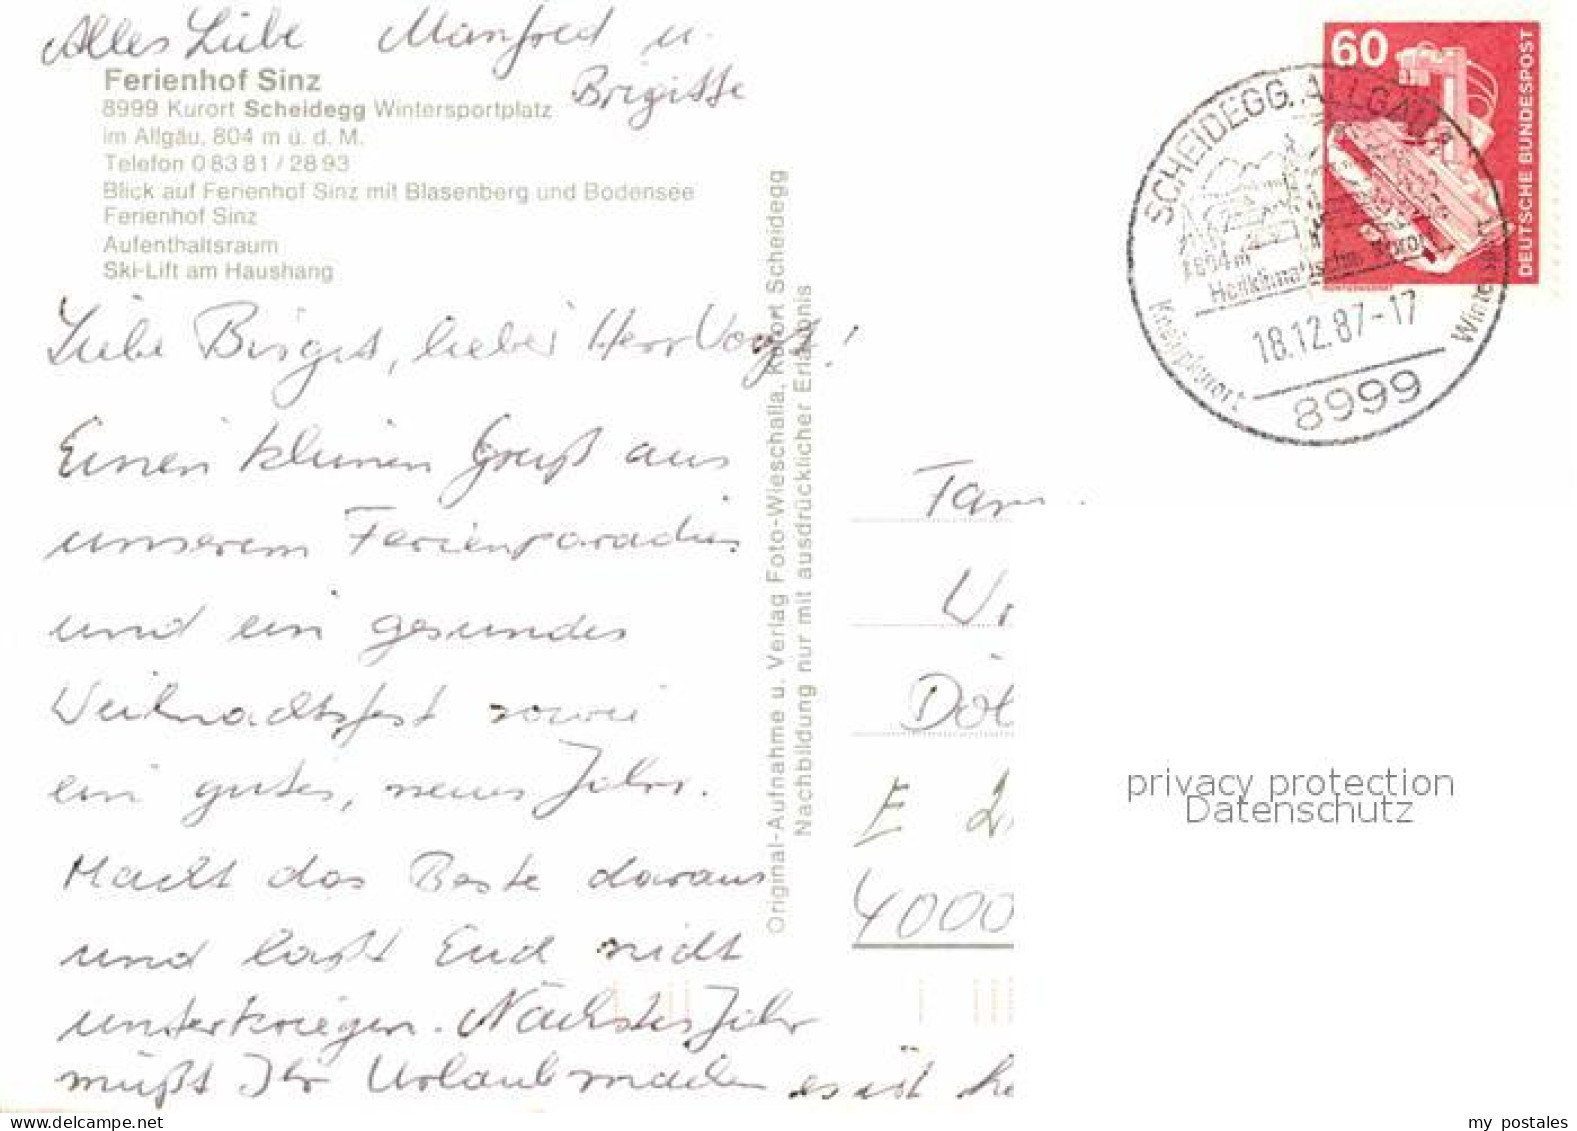 Alles Liebe Manfred u.
Brigitte
Ferienhof Sinz
8999 Kurort Scheidegg Wintersportplatz
im Allgäu, 804 m ü. d. M.
Telefon 0 83 81 / 28 93
Blick auf Ferienhof Sinz mit Blasenberg und Bodensee
Ferienhof Sinz
Aufenthaltsraum
Ski-Lift am Haushang
Liebe Birgit, lieber Herr Vogt!
Einen kleinen Gruß aus
unserem Ferienparadies
und ein gesundes
Weihnachtsfest sowie
ein gutes, neues Jahr.
Macht das Beste daraus
und laßt Euch nicht
unterkriegen. Nächstes Jahr
müßt Ihr Urlaub machen es ist
Original-Aufnahme u. Verlag Foto-Wieschalla, Kurort Scheidegg
Nachbildung nur mit ausdrücklicher Erlaubnis
60
DEUTSCHE BUNDESPOST
SCHEIDEGG, ALLGÄU
804 m
Heilklimatischer Kurort
Kneippkurort
18.12.87-17
8999
Fam.
Döt
E
4000
privacy protection
Datenschutz
my postales